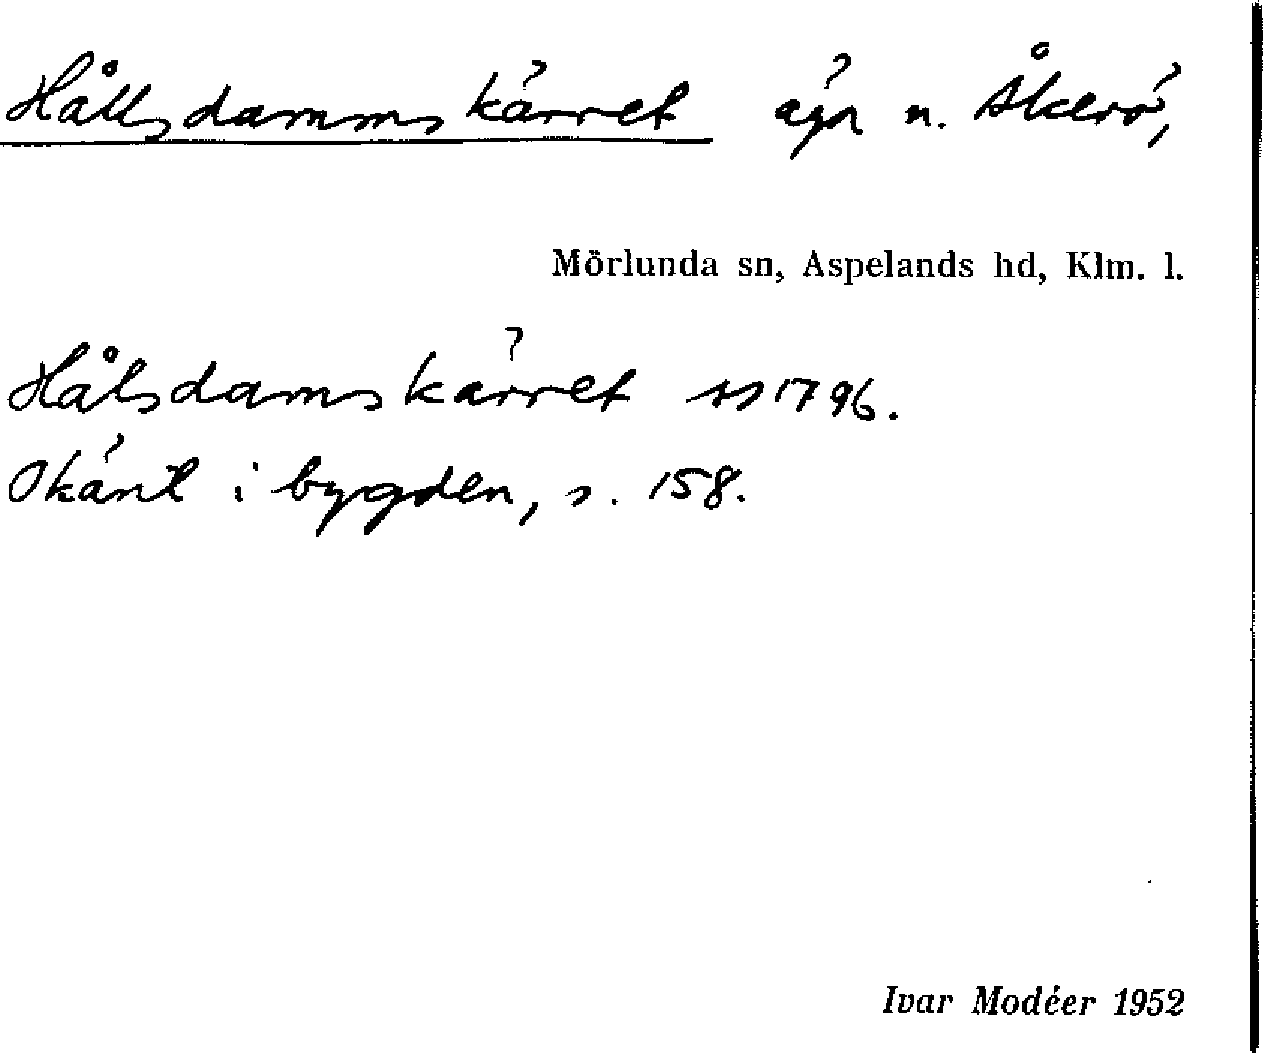 Hållsdammskärret äga u. Åkerö,
Mörlunda sn, Aspelands hd, Klm. l.
Hålsdamskärret ss 1796.
Okänt i bygden, s. 158.
Ivar Modéer 1952